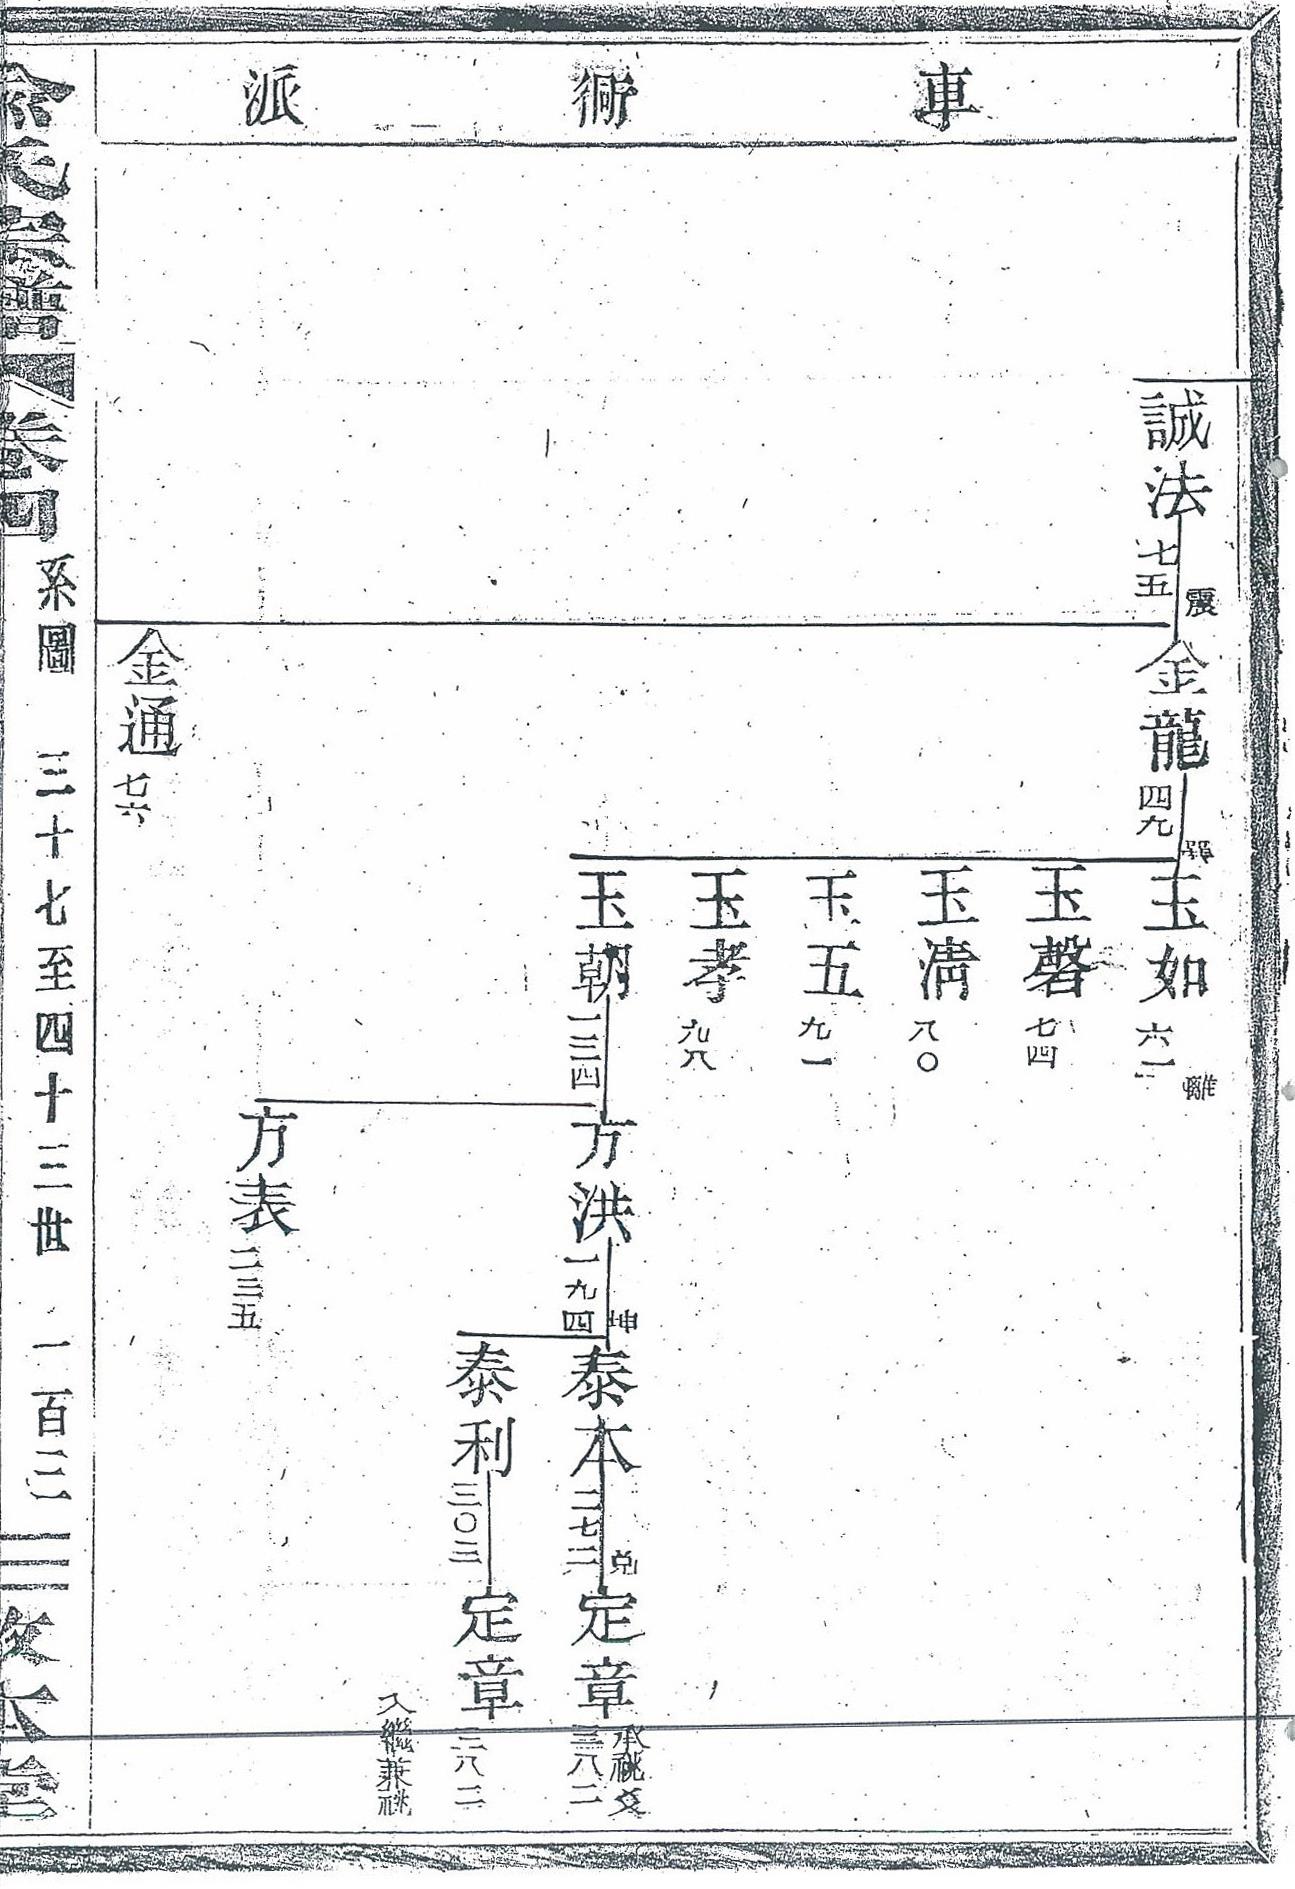 車衕派
誠法
七五
震
金龍
四九
巽
金通
七六
玉如
六一
離
玉磬
七四
玉淸
八〇
玉五
九一
玉孝
九八
玉朝
一三四
方洪
一九四
坤
方表
二三五
泰本
二七二
兌
泰利
三〇三
定章
三八二
承祧爻
定章
三八二
入繼兼祧
氏宗譜
卷四
系圖
三十七至四十三世
一百三
本堂